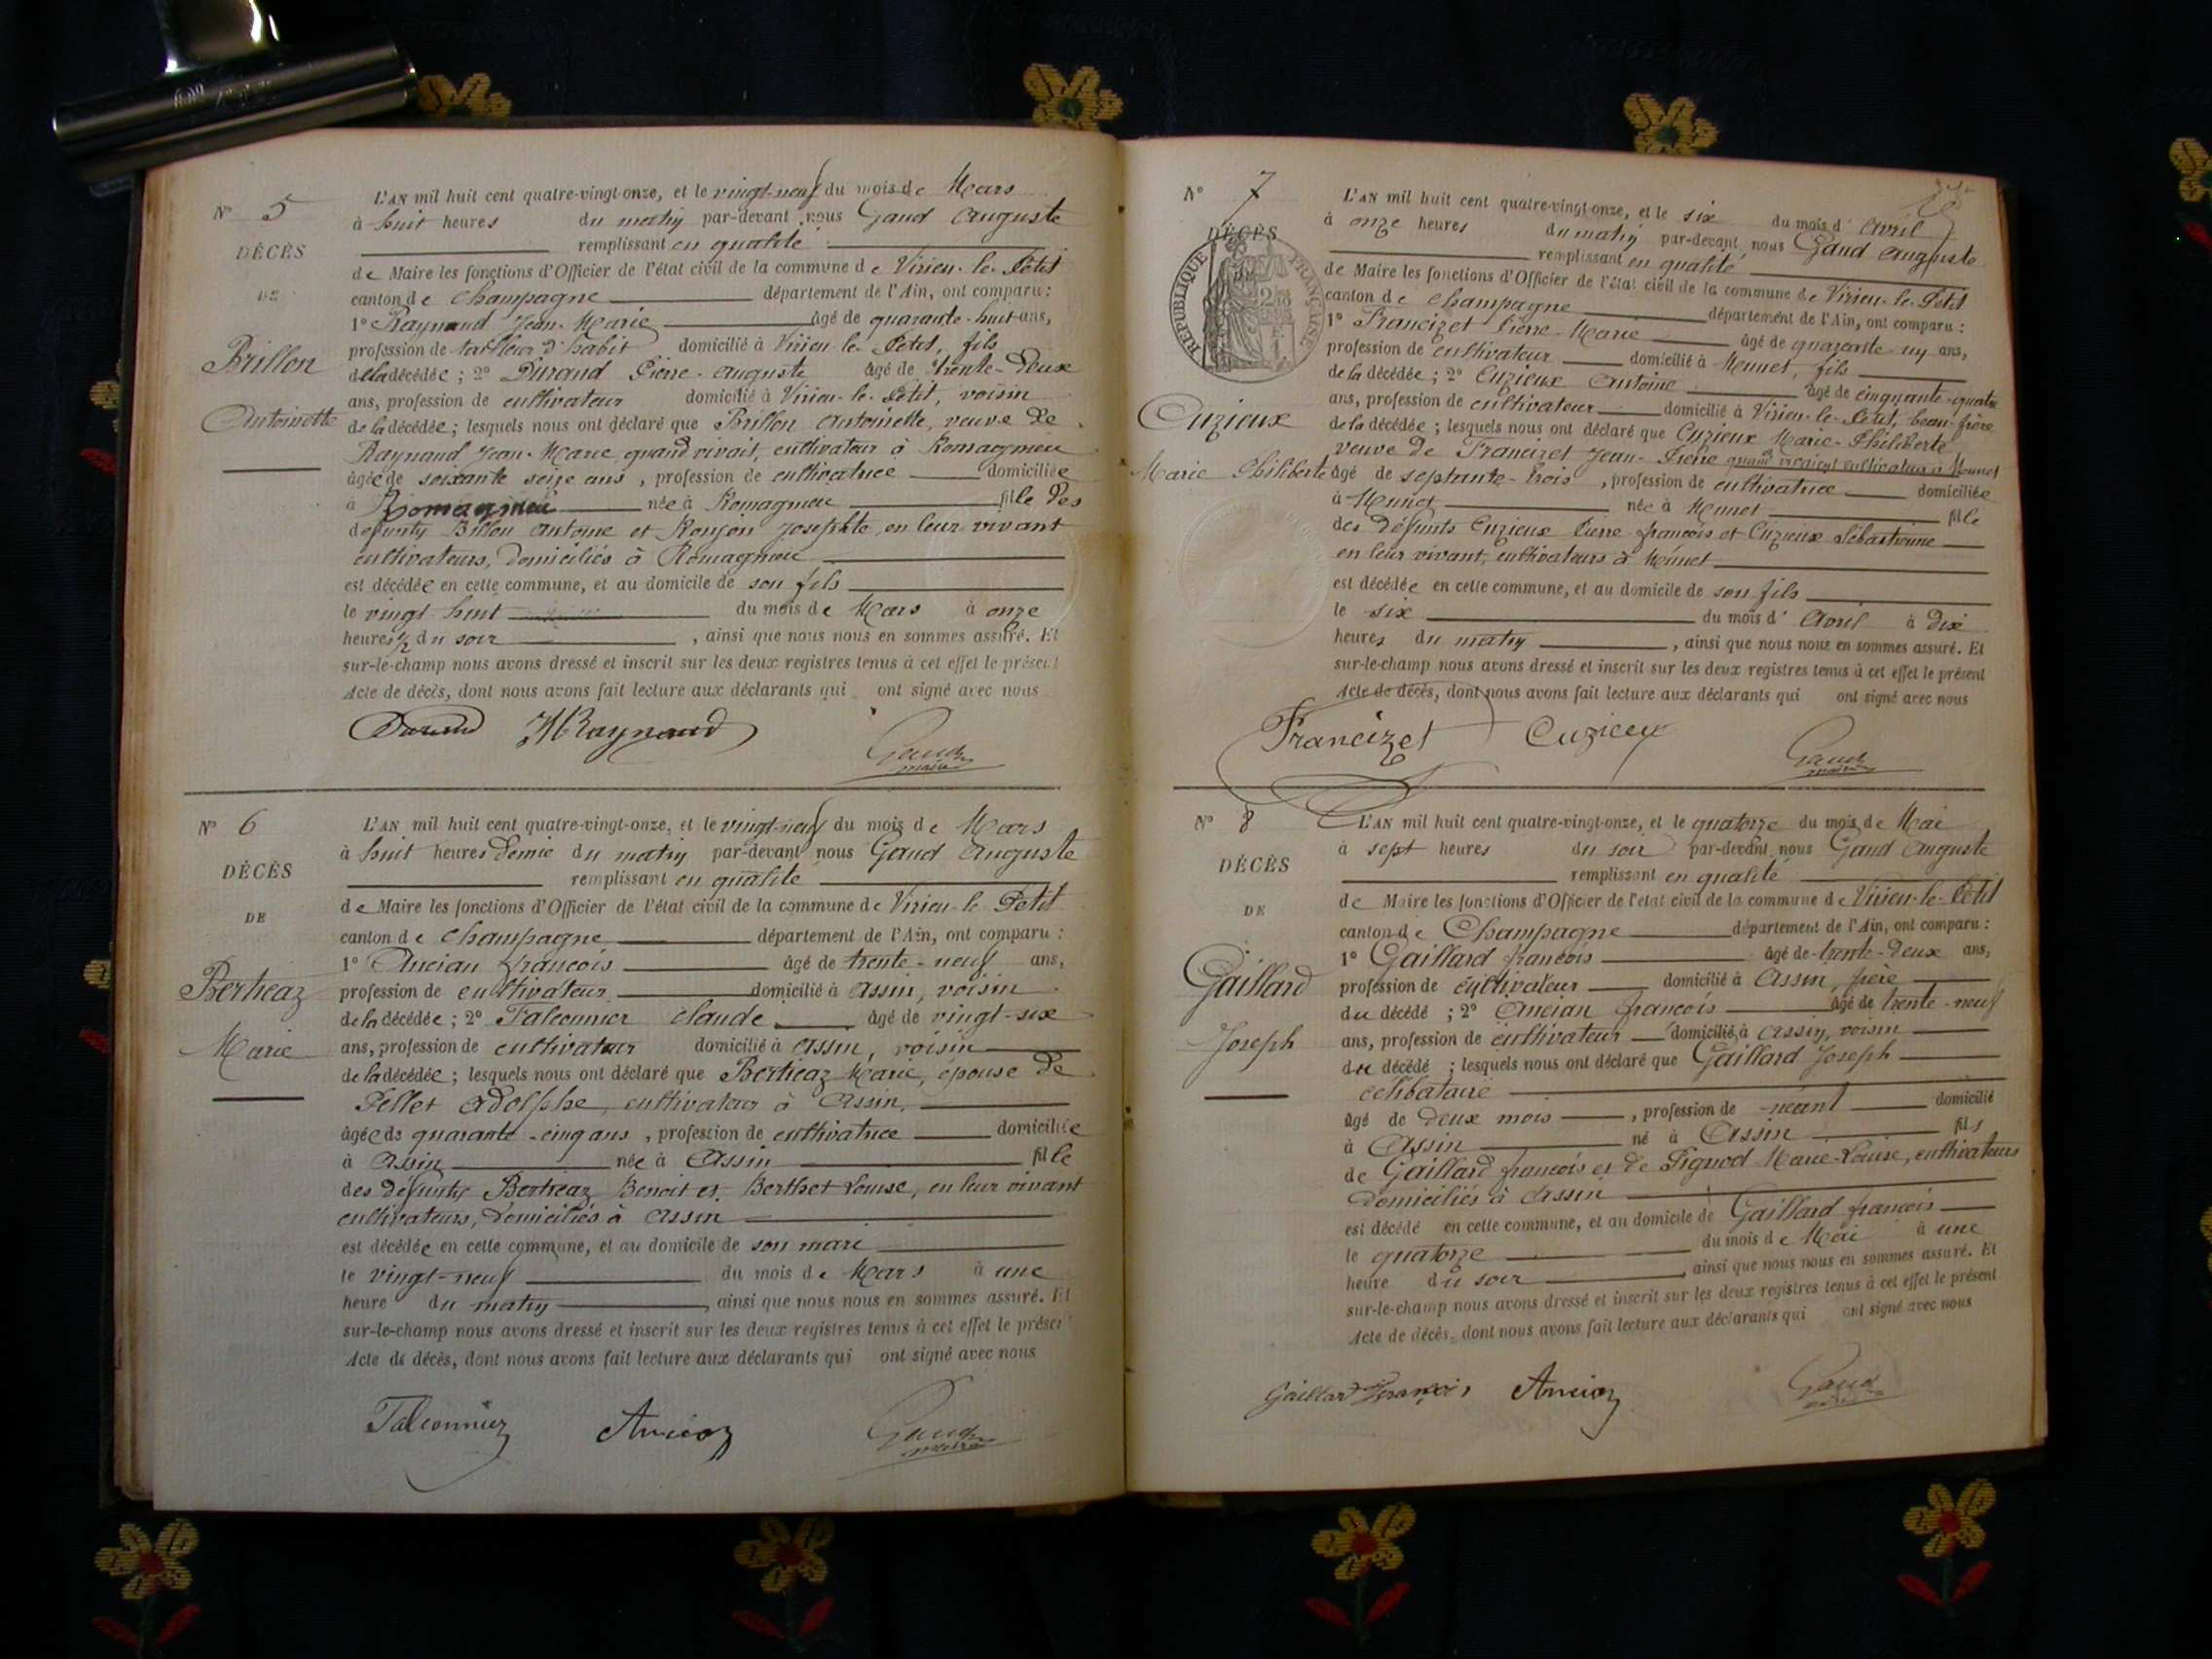 N° 5
DÉCÈS
DE
Brillon
Antoinette
L'AN mil huit cent quatre-vingt-onze, et le vingt-neuf du mois de Mars
à huit heures du matin par-devant nous Gaud Auguste
remplissant en qualité
de Maire les fonctions d'Officier de l'état civil de la commune de Virieu-le-Petit
canton de Champagne département de l'Ain, ont comparu :
1° Raynaud Jean-Marie âgé de quarante-huit ans,
profession de tailleur d'habit domicilié à Virieu-le-Petit, fils
de la décédée ; 2° Durand Pierre-Auguste âgé de trente-deux
ans, profession de cultivateur domicilié à Virieu-le-Petit, voisin
de la décédée ; lesquels nous ont déclaré que Brillon Antoinette, veuve de
Raynaud Jean-Marie, quand vivait, cultivateur à Romagnieu
âgée de soixante seize ans, profession de cultivatrice domiciliée
à Romagnieu née à Romagnieu fille des
défunts Billon Antoine et Roujon Josephte, en leur vivant
cultivateurs, domiciliés à Romagnieu
est décédée en cette commune, et au domicile de son fils
le vingt huit du mois de Mars à onze
heures ½ du soir, ainsi que nous nous en sommes assuré. Et
sur-le-champ nous avons dressé et inscrit sur les deux registres tenus à cet effet le présent
Acte de décès, dont nous avons fait lecture aux déclarants qui ont signé avec nous
Durand JMRaynaud Gaud
maire
N° 6
DÉCÈS
DE
Bertheaz
Marie
L'AN mil huit cent quatre-vingt-onze, et le vingt-neuf du mois de Mars
à huit heures demie du matin par-devant nous Gaud Auguste
remplissant en qualité
de Maire les fonctions d'Officier de l'état civil de la commune de Virieu-le-Petit
canton de Champagne département de l'Ain, ont comparu :
1° Ancian françois âgé de trente-neuf ans,
profession de cultivateur domicilié à Assin, voisin
de la décédée ; 2° Falconnier Claude âgé de vingt-six
ans, profession de cultivateur domicilié à Assin, voisin
de la décédée ; lesquels nous ont déclaré que Bertheaz Marie, épouse de
Pellet Adolphe, cultivateur à Assin,
âgée de quarante-cinq ans, profession de cultivatrice domiciliée
à Assin née à Assin fille
des défunts Bertheaz Benoit et Berthet Louise, en leur vivant
cultivateurs, domiciliés à Assin
est décédée en cette commune, et au domicile de son mari
le vingt-neuf du mois de Mars à une
heure du matin, ainsi que nous nous en sommes assuré. Et
sur-le-champ nous avons dressé et inscrit sur les deux registres tenus à cet effet le présent
Acte de décès, dont nous avons fait lecture aux déclarants qui ont signé avec nous
Falconnier Ancian Gaud
maire
N° 7
DÉCÈS
RÉPUBLIQUE FRANÇAISE
Cuzieux
Marie Philiberte
L'AN mil huit cent quatre-vingt-onze, et le six du mois d'Avril
à onze heures du matin par-devant nous Gaud Auguste
remplissant en qualité
de Maire les fonctions d'Officier de l'état civil de la commune de Virieu-le-Petit
canton de Champagne département de l'Ain, ont comparu :
1° Francizet Pierre-Marie âgé de quarante-un ans,
profession de cultivateur domicilié à Munet, fils
de la décédée ; 2° Cuzieux Antoine âgé de cinquante-quatre
ans, profession de cultivateur domicilié à Virieu-le-Petit, beau-frère
de la décédée ; lesquels nous ont déclaré que Cuzieux Marie-Philiberte
veuve de Francizet Jean-Pierre quand vivait cultivateur à Munet
âgé de septante-trois, profession de cultivatrice domiciliée
à Munet née à Munet fille
des défunts Cuzieux Pierre françois et Cuzieux Sébastienne
en leur vivant, cultivateurs à Munet
est décédée en cette commune, et au domicile de son fils
le six du mois d'Avril à dix
heures du matin, ainsi que nous nous en sommes assuré. Et
sur-le-champ nous avons dressé et inscrit sur les deux registres tenus à cet effet le présent
Acte de décès, dont nous avons fait lecture aux déclarants qui ont signé avec nous
Francizet Cuzieux Gaud
maire
N° 8
DÉCÈS
DE
Gaillard
Joseph
L'AN mil huit cent quatre-vingt-onze, et le quatorze du mois de Mai
à sept heures du soir par-devant nous Gaud Auguste
remplissant en qualité
de Maire les fonctions d'Officier de l'état civil de la commune de Virieu-le-Petit
canton de Champagne département de l'Ain, ont comparu :
1° Gaillard françois âgé de trente-deux ans,
profession de cultivateur domicilié à Assin, père
du décédé ; 2° Ancian françois âgé de trente-neuf
ans, profession de cultivateur domicilié à Assin, voisin
du décédé ; lesquels nous ont déclaré que Gaillard Joseph
célibataire
âgé de deux mois, profession de néant domicilié
à Assin né à Assin fils
de Gaillard françois et de Pignod Marie-Louise, cultivateurs
domiciliés à Assin
est décédé en cette commune, et au domicile de Gaillard françois
le quatorze du mois de Mai à une
heure du soir, ainsi que nous nous en sommes assuré. Et
sur-le-champ nous avons dressé et inscrit sur les deux registres tenus à cet effet le présent
Acte de décès, dont nous avons fait lecture aux déclarants qui ont signé avec nous
Gaillard François Ancian Gaud
maire